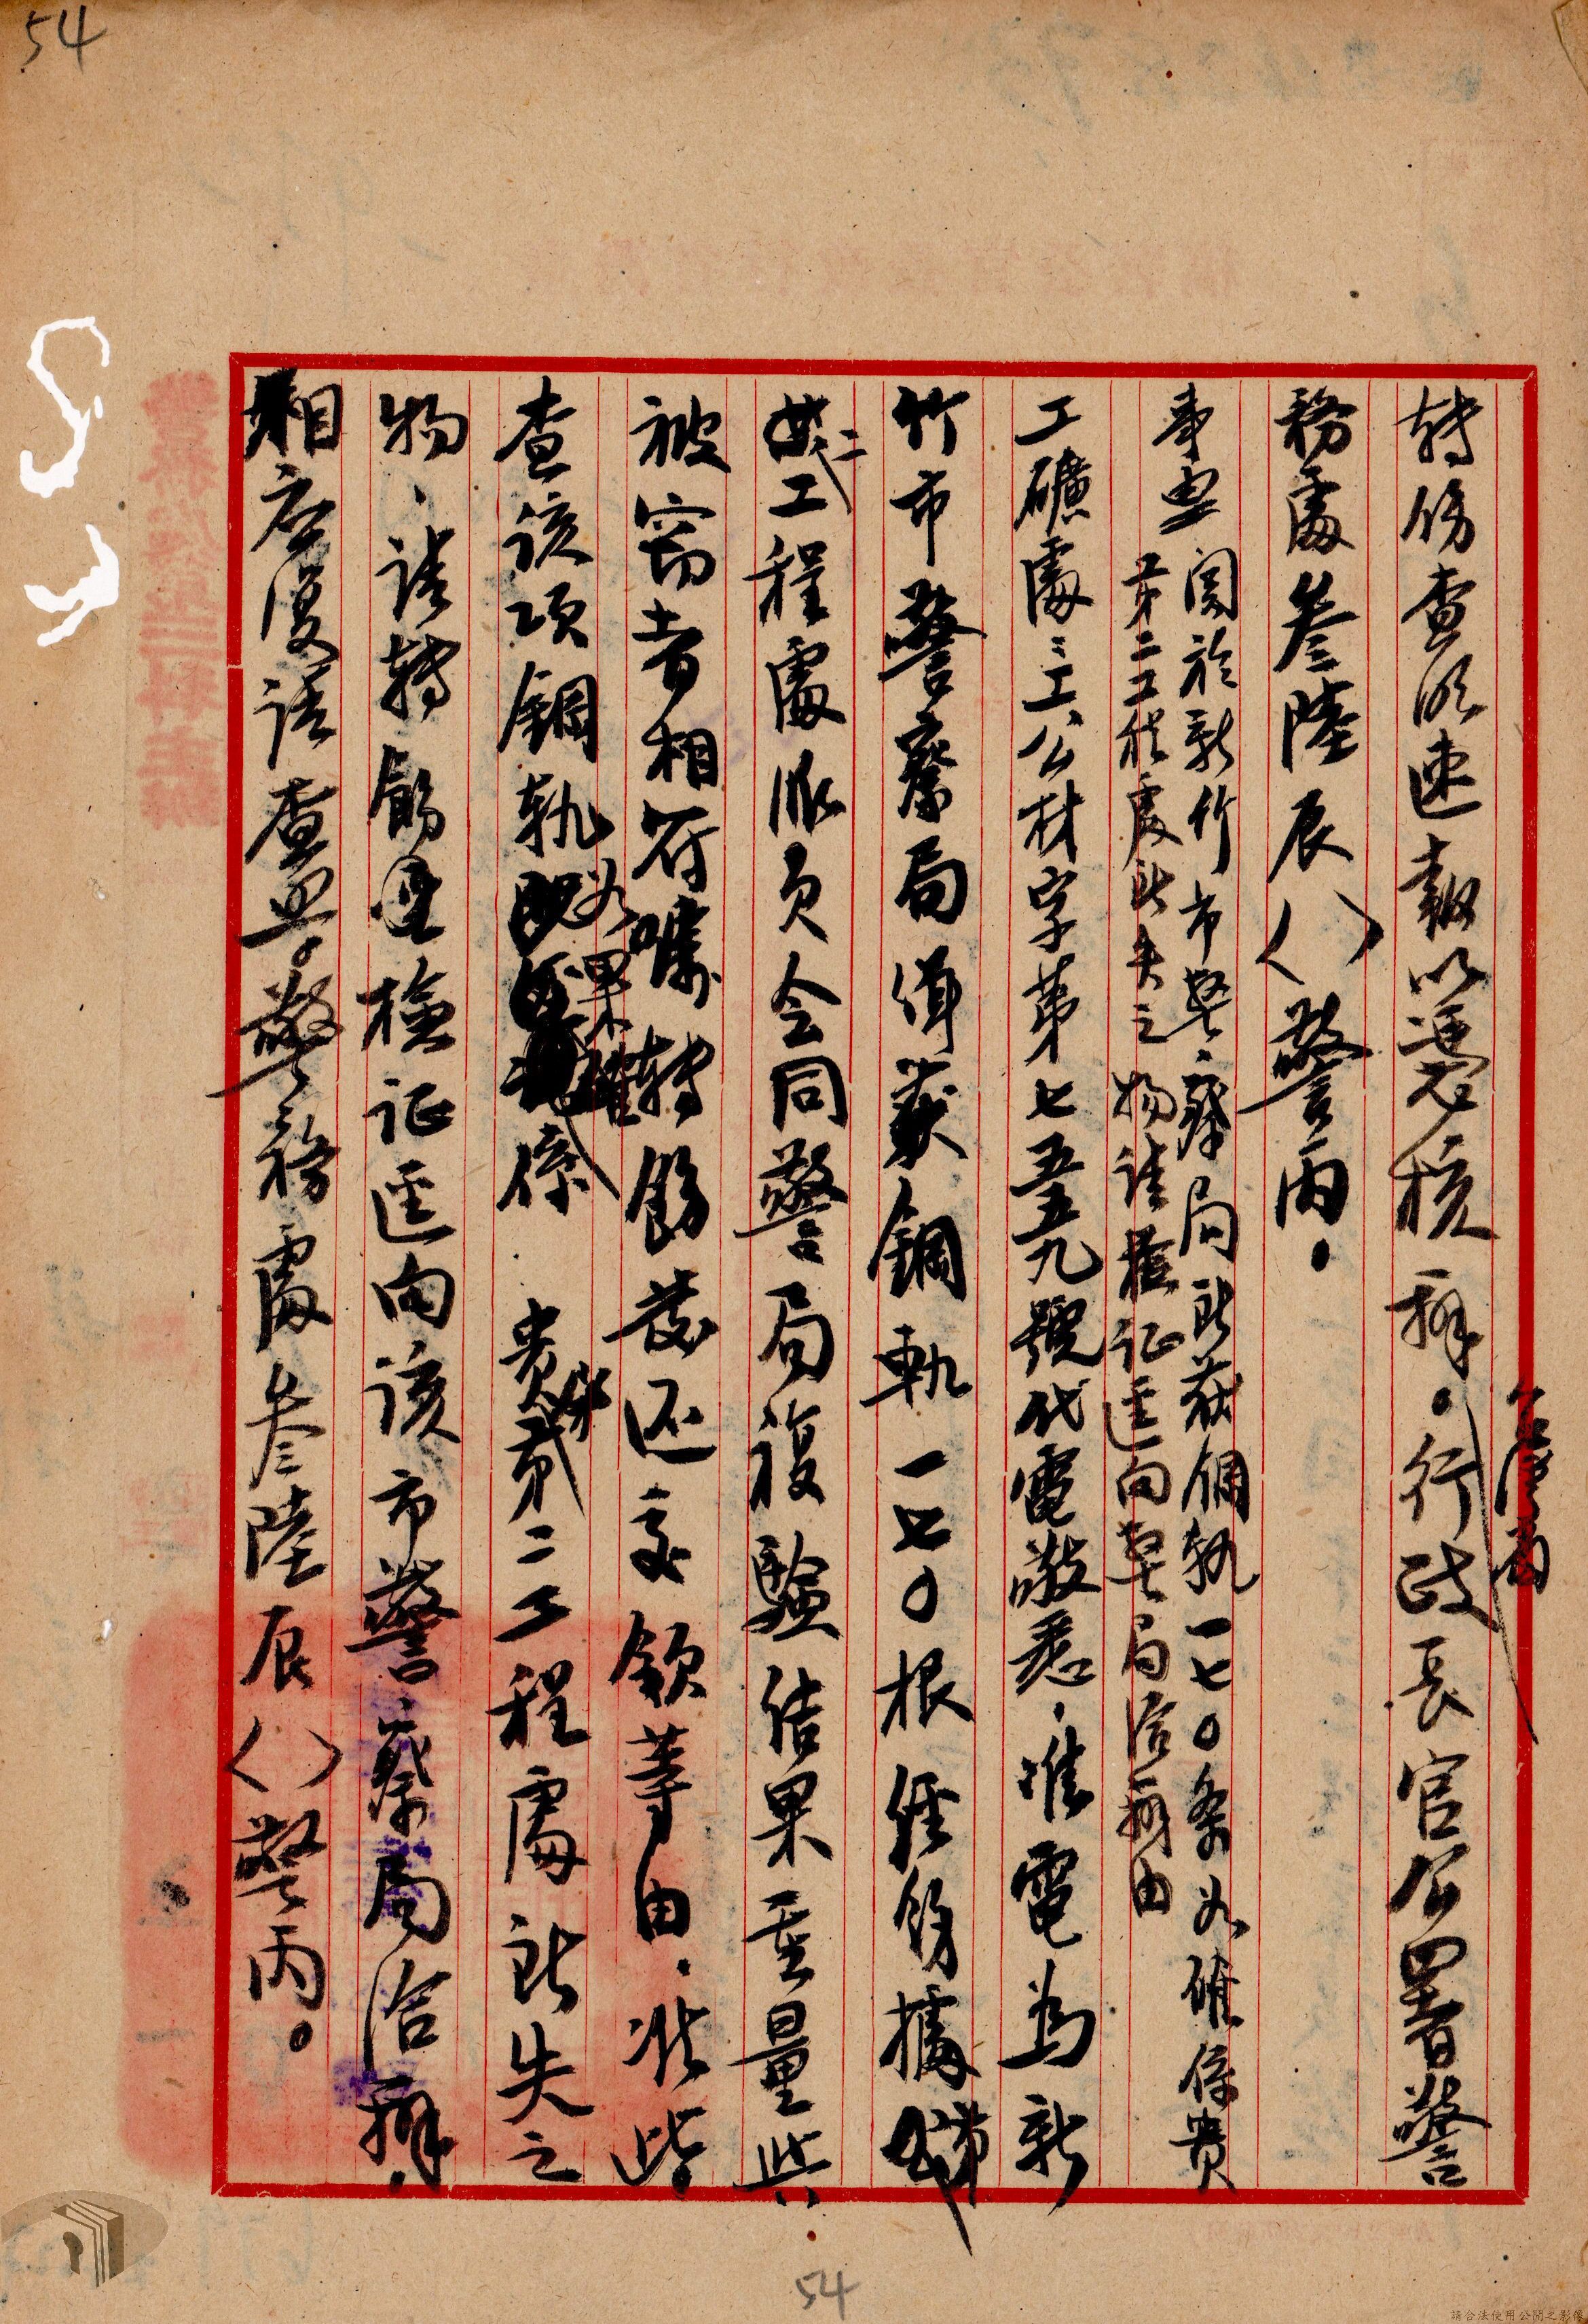 54
轉飭查明速報以憑核辦。行政長官公署警
務處叁陸辰〈〉警丙。
事由
関於新竹市警察局所获鋼軌一七〇条如確係貴
第二工程處所失之物請檢证逕向警局洽辦由
工礦處三工公材字第七五五九號代電敬悉。准電為新
竹市警察局偵獲鋼軌一七〇根經飭據
第二工程處派員会同警局複驗結果重量与
被窃者相符囑轉飭發还交領等由。准此。
查该項鋼軌如果確係 貴第二工程處所失之
物、請轉飭檢证逕向该市警察局洽辦。
相应復請查照。警務處叁陸辰〈〉警丙。
54
請合法使用公開之影像